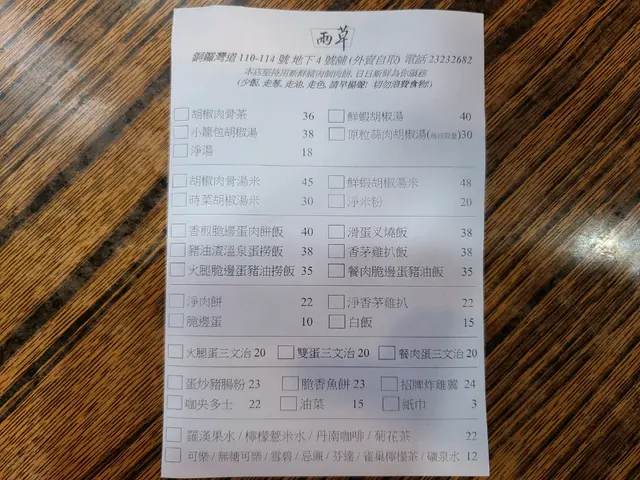 兩草
銅鑼灣道 110-114 號 地下 4 號舖 (外賣自取) 電話 23232682
本店堅持用新鮮豬肉制肉餅, 日日新鮮為你服務
(少飯, 走葱, 走油, 走色, 請早揚聲! 切勿浪費食物!)
胡椒肉骨茶 36 鮮蝦胡椒湯 40
小籠包胡椒湯 38 原粒蒜肉胡椒湯(每日限量)30
淨湯 18
胡椒肉骨湯米 45 鮮蝦胡椒湯米 48
時菜胡椒湯米 30 淨米粉 20
香煎脆邊蛋肉餅飯 40 滑蛋叉燒飯 38
豬油渣溫泉蛋撈飯 38 香茅雞扒飯 38
火腿脆邊蛋豬油撈飯 35 餐肉脆邊蛋豬油飯 35
淨肉餅 22 淨香茅雞扒 22
脆邊蛋 10 白飯 15
火腿蛋三文治 20 雙蛋三文治 20 餐肉蛋三文治 20
蛋炒豬腸粉 23 脆香魚餅 23 招牌炸雞翼 24
咖央多士 22 油菜 15 紙巾 3
羅漢果水 / 檸檬薏米水 / 丹南咖啡 / 菊花茶 22
可樂 / 無糖可樂 / 雪碧 / 忌廉 / 芬達 / 雀巢檸檬茶 / 礦泉水 12